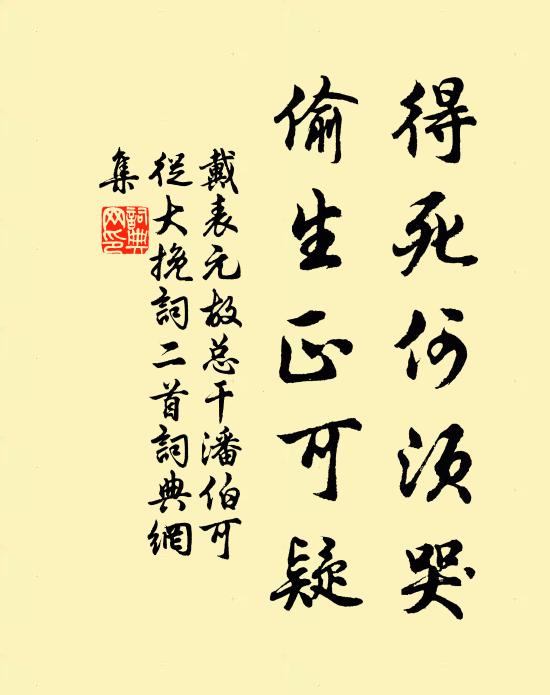 得死何須哭
偷生正可疑
戴表元故总干潘伯可
從大挽詞二首詞典網
集
詞典網印